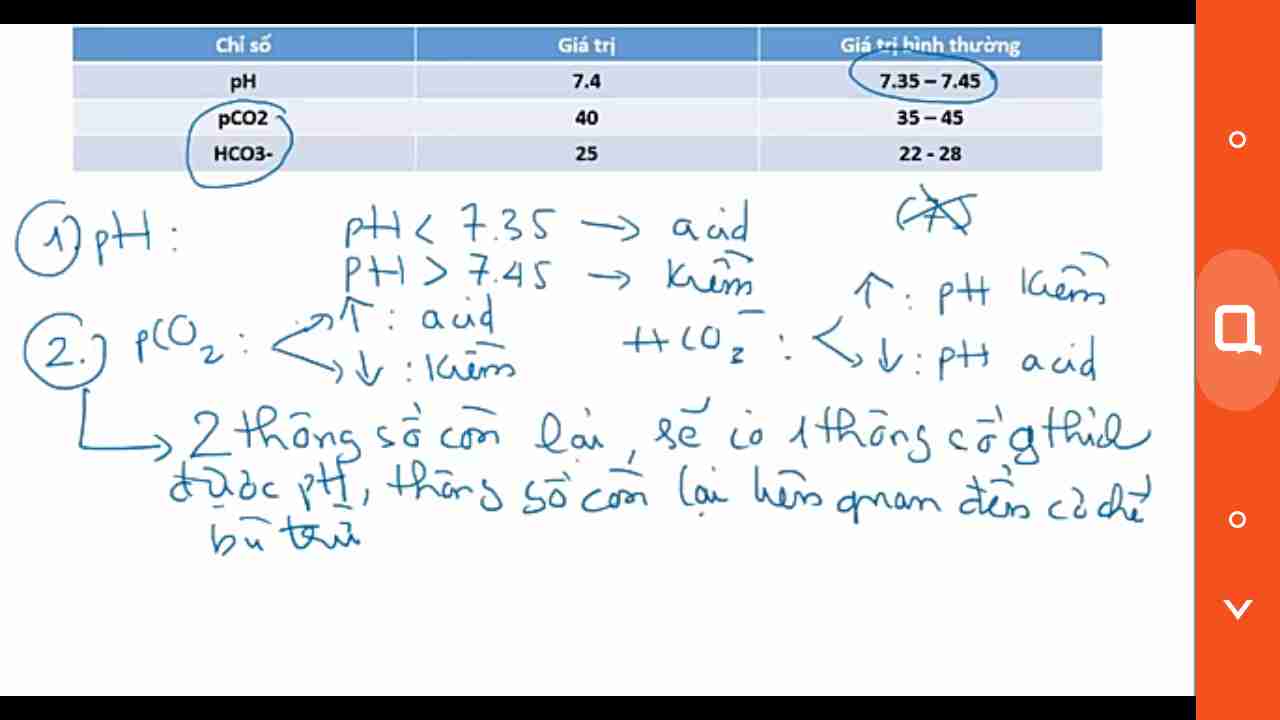 Chỉ số Giá trị Giá trị bình thường
pH 7.4 7.35 – 7.45
pCO2 40 35 – 45
HCO3- 25 22 - 28
1) pH : pH < 7.35 → acid
pH > 7.45 → Kiềm
2.) pCO₂ : ↑ : acid
↓ : Kiềm
HCO₃⁻ : ↑ : pH Kiềm
↓ : pH acid
2 thông số còn lại, sẽ có 1 thông số gthích
được pH, thông số còn lại liên quan đến cơ chế
bù trừ